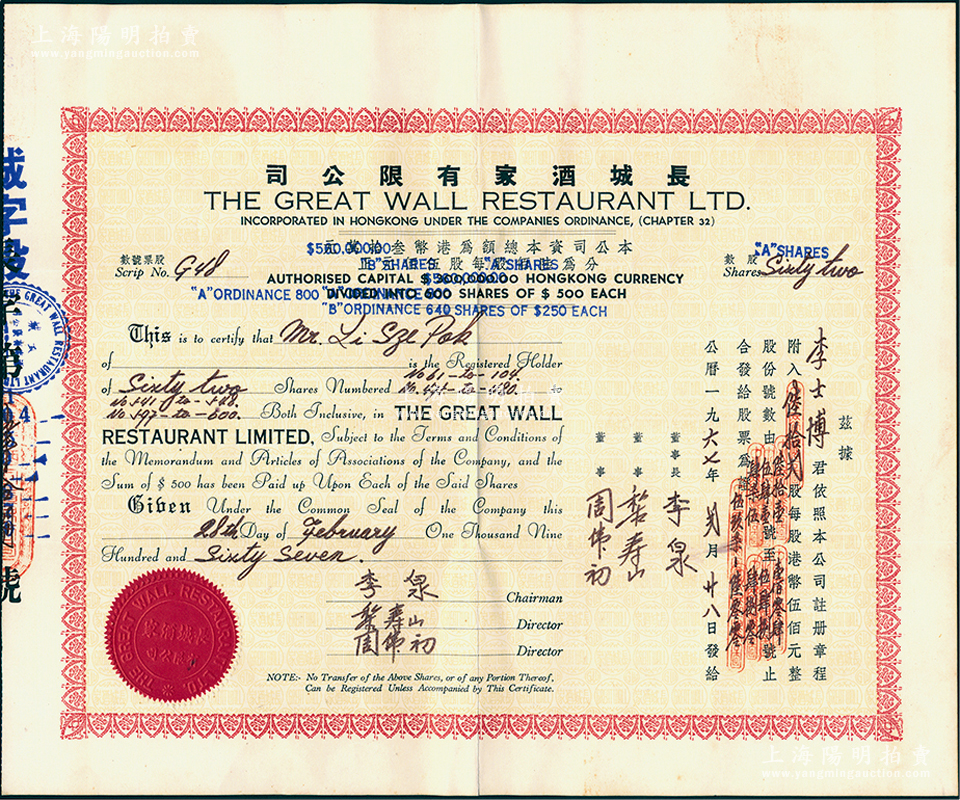 上海陽明拍賣
www.yangmingauction.com
司公限有家酒城長
THE GREAT WALL RESTAURANT LTD.
INCORPORATED IN HONGKONG UNDER THE COMPANIES ORDINANCE, (CHAPTER 32)
數號票股
Scrip No. G48
$560,000.00
本公司資本總額為港幣叁拾萬元
數股
"A" SHARES
Shares Sixty two
"B" SHARES "A" SHARES
分為陸佰股每股伍佰元正
AUTHORISED CAPITAL $300,000.00 HONGKONG CURRENCY
$560,000.00
"A" ORDINANCE 800
DIVIDED INTO 600 SHARES OF $ 500 EACH
"B" ORDINANCE 640 SHARES OF $250 EACH
This is to certify that Mr. Li Sze Pok
of is the Registered Holder
No 61 - to - 104
of Sixty two Shares Numbered No. 475 - to - 480. to
No 541 - to - 548.
No 597 - to - 600. Both Inclusive, in THE GREAT WALL
RESTAURANT LIMITED, Subject to the Terms and Conditions of
the Memorandum and Articles of Associations of the Company, and the
Sum of $ 500 has been Paid up Upon Each of the Said Shares
Given Under the Common Seal of the Company this
28th Day of February One Thousand Nine
Hundred and Sixty Seven.
李泉 Chairman
黎壽山 Director
周佛初 Director
NOTE:- No Transfer of the Above Shares, or of any Portion Thereof,
Can be Registered Unless Accompanied by This Certificate.
茲據
李士博君依照本公司註册章程
附入陸拾貳股每股港幣伍佰元整
股份號數由陸拾壹號至壹佰零肆號止
合發給股票為證
公曆一九六七年 貳月廿八日發給
董事長 李泉
董事 黎壽山
董事 周佛初
THE GREAT WALL RESTAURANT LTD.
長城酒家
有限公司
城字股
第
號
上海陽明拍賣
www.yangmingauction.com